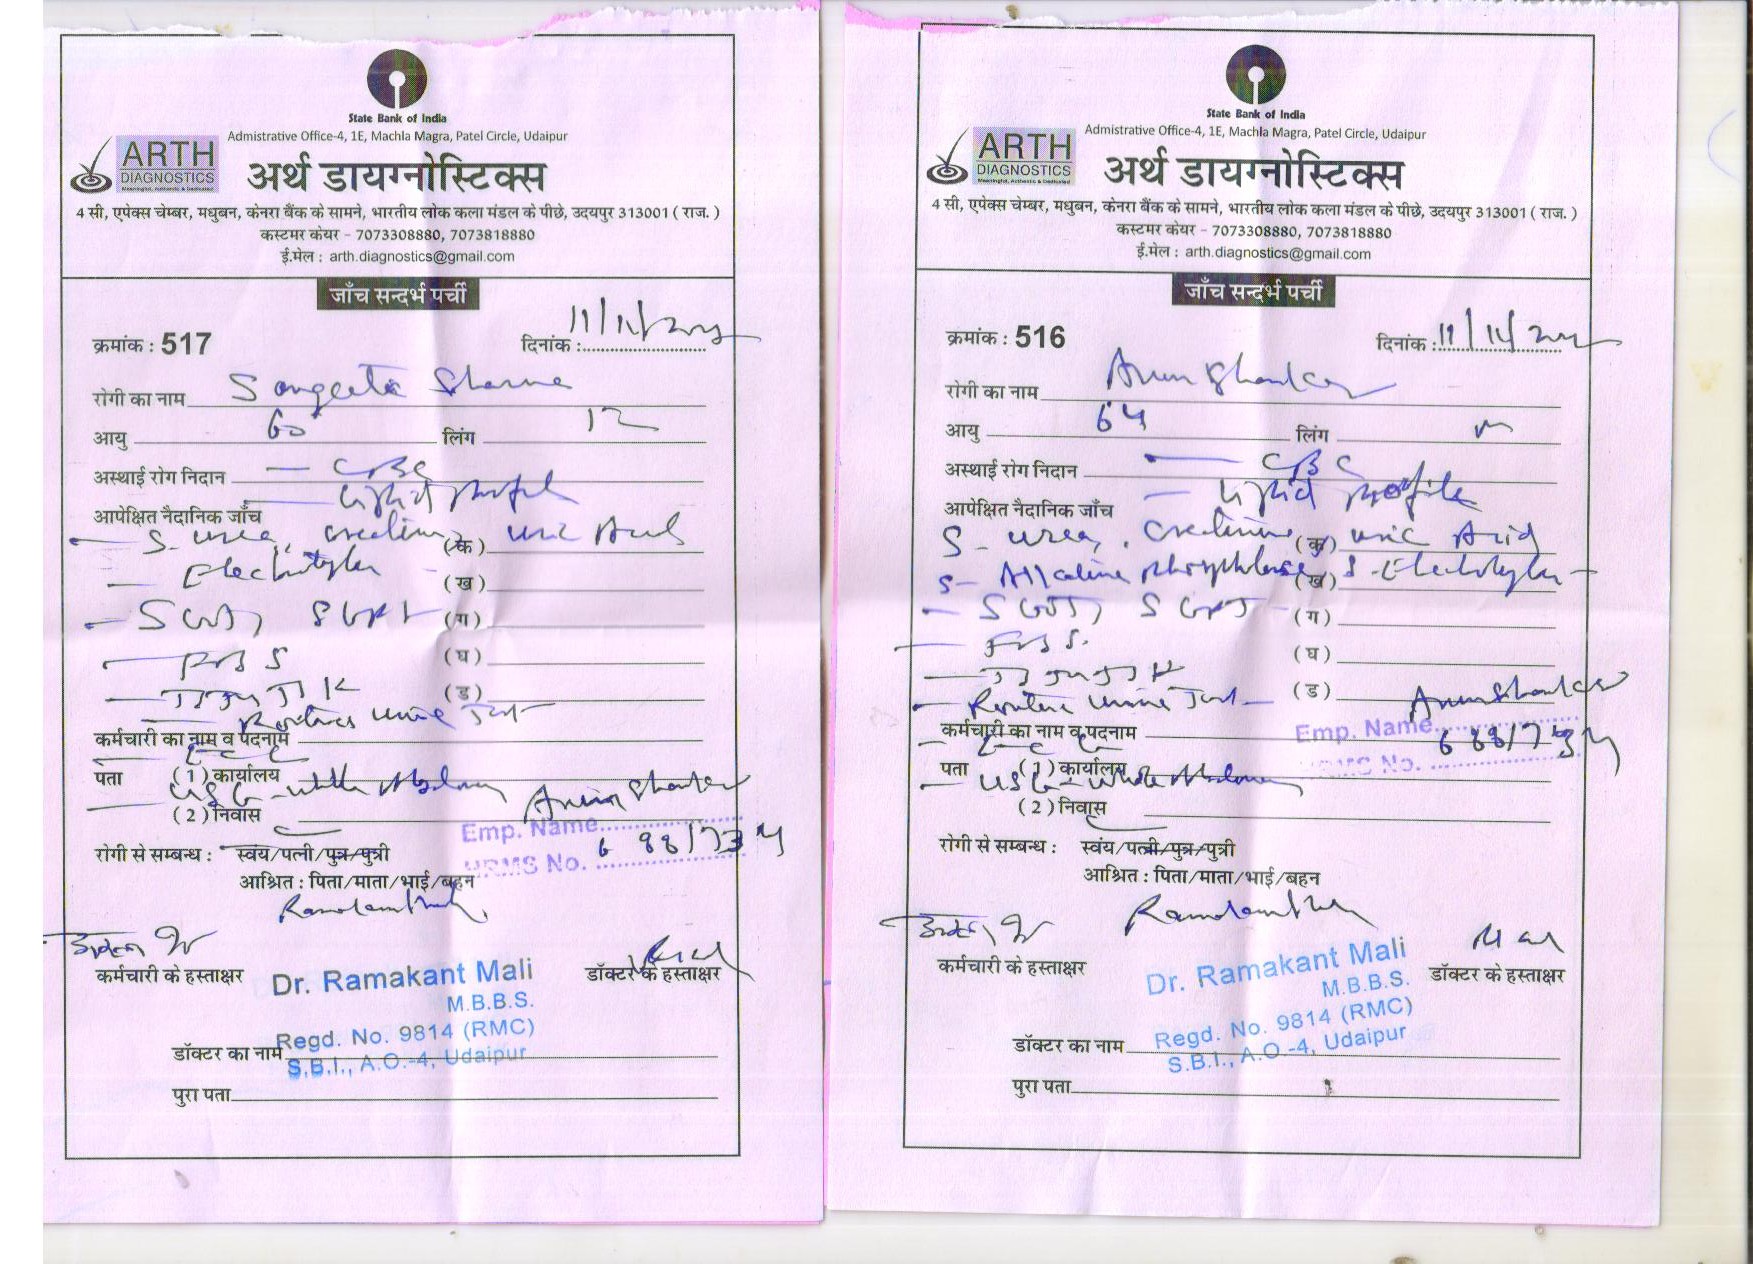 State Bank of India
Admistrative Office-4, 1E, Machla Magra, Patel Circle, Udaipur
ARTH
DIAGNOSTICS
Meaningful, Authentic & Dedicated
अर्थ डायग्नोस्टिक्स
4 सी, एपेक्स चेम्बर, मधुबन, केनरा बैंक के सामने, भारतीय लोक कला मंडल के पीछे, उदयपुर 313001 ( राज. )
कस्टमर केयर - 7073308880, 7073818880
ई.मेल : arth.diagnostics@gmail.com
जाँच सन्दर्भ पर्ची
क्रमांक : 517 दिनांक : 11/11/
रोगी का नाम Sangeeta Sharma
आयु 60 लिंग
अस्थाई रोग निदान — CBC
— Lipid Profile
आपेक्षित नैदानिक जाँच
— S. urea, creatinine (क) uric Acid
— Electrolytes (ख)
— SGOT, SGPT (ग)
— FBS (घ)
(ड)
— Routine urine Test —
कर्मचारी का नाम व पदनाम
पता (1) कार्यालय
USG - whole Abdomen
(2) निवास Arun Shanker
Emp. Name
HRMS No.
रोगी से सम्बन्ध : स्वंय/पत्नी/पुत्र/पुत्री
आश्रित : पिता/माता/भाई/बहन
कर्मचारी के हस्ताक्षर डॉक्टर के हस्ताक्षर
Dr. Ramakant Mali
M.B.B.S.
Regd. No. 9814 (RMC)
डॉक्टर का नाम S.B.I., A.O.-4, Udaipur
पुरा पता
State Bank of India
Admistrative Office-4, 1E, Machla Magra, Patel Circle, Udaipur
ARTH
DIAGNOSTICS
Meaningful, Authentic & Dedicated
अर्थ डायग्नोस्टिक्स
4 सी, एपेक्स चेम्बर, मधुबन, केनरा बैंक के सामने, भारतीय लोक कला मंडल के पीछे, उदयपुर 313001 ( राज. )
कस्टमर केयर - 7073308880, 7073818880
ई.मेल : arth.diagnostics@gmail.com
जाँच सन्दर्भ पर्ची
क्रमांक : 516 दिनांक : 11/11/
रोगी का नाम Arun Shanker
आयु 64 लिंग m
अस्थाई रोग निदान — CBC
— Lipid Profile
आपेक्षित नैदानिक जाँच
S - urea, Creatinine (क) uric Acid
S - Alkaline phosphatase (ख) S - Electrolytes —
— SGOT, SGPT — (ग)
— FBS. (घ)
(ड)
— Routine urine Test — Arun Shanker
कर्मचारी का नाम व पदनाम
Emp. Name
HRMS No.
पता (1) कार्यालय
— USG - whole Abdomen
(2) निवास
रोगी से सम्बन्ध : स्वंय/पत्नी/पुत्र/पुत्री
आश्रित : पिता/माता/भाई/बहन
कर्मचारी के हस्ताक्षर डॉक्टर के हस्ताक्षर
Dr. Ramakant Mali
M.B.B.S.
Regd. No. 9814 (RMC)
डॉक्टर का नाम S.B.I., A.O.-4, Udaipur
पुरा पता